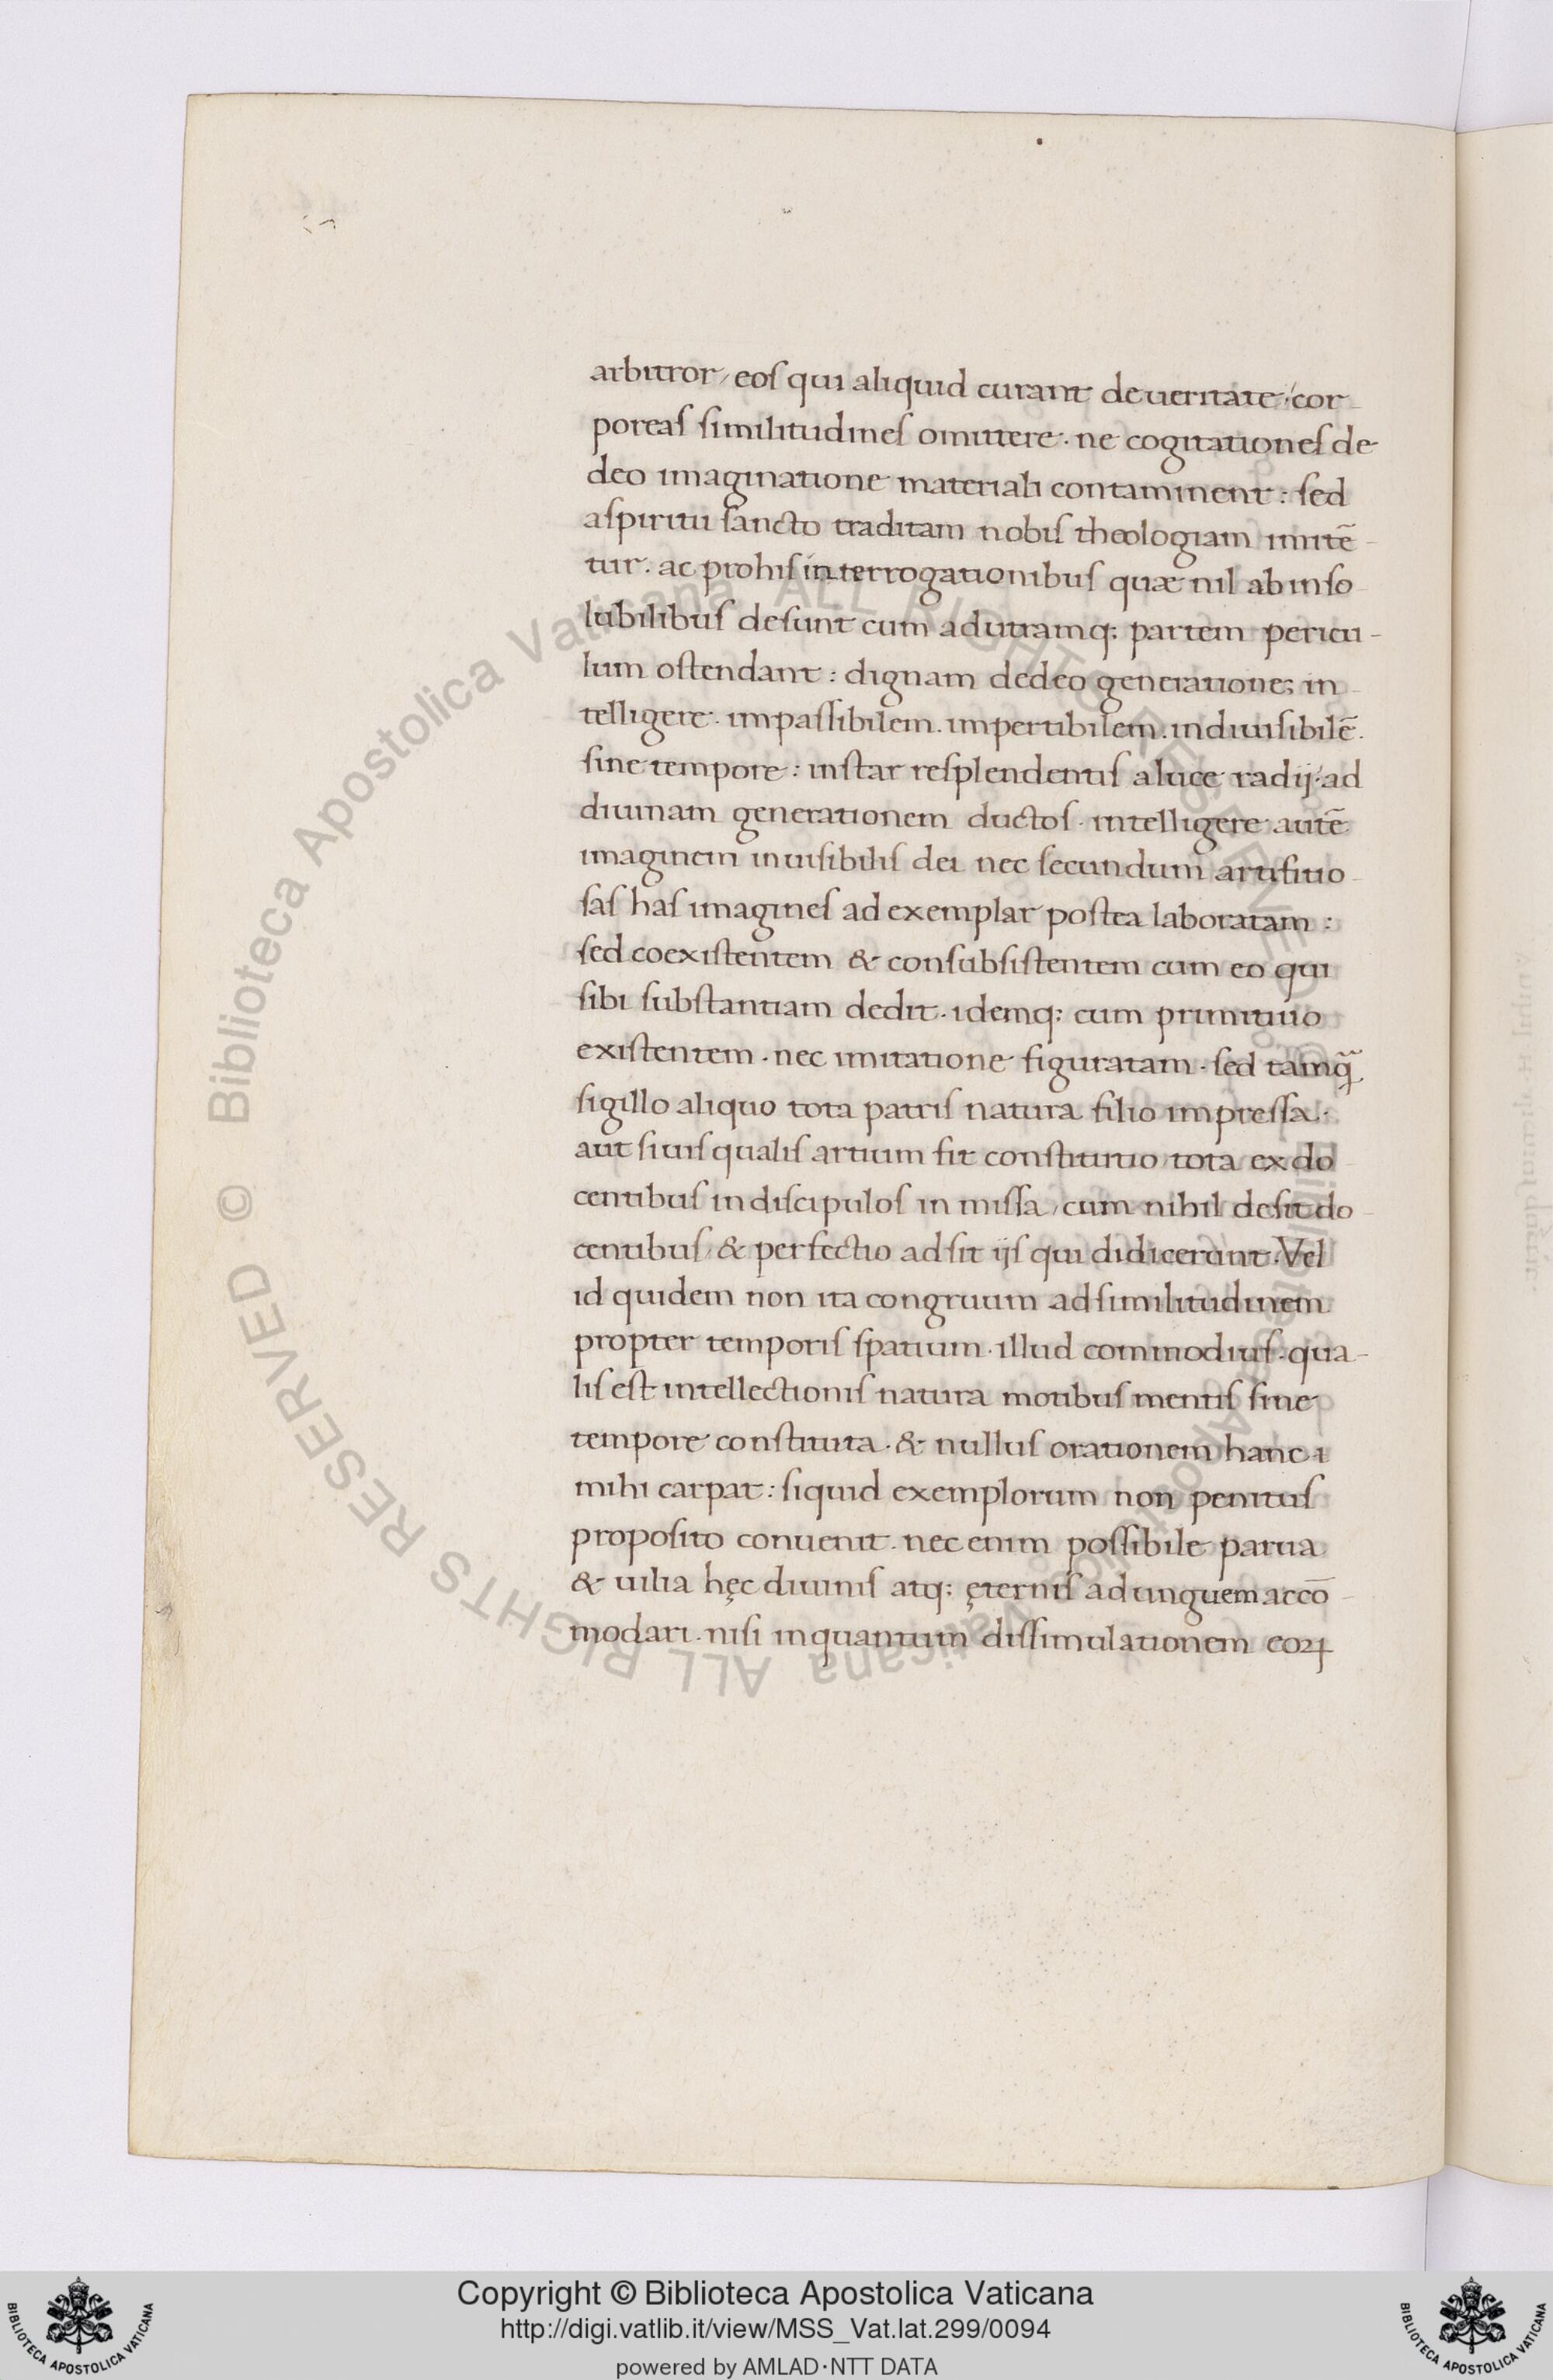 arbitror, eos qui aliquid curant de ueritate, cor
poreas similitudines omittere. ne cogitationes de
deo imaginatione materiali contaminent: sed
aspiritu sancto traditam nobis theologiam imitē
tur. ac prohis interrogationibus quæ nil ab inso
lubilibus desunt cum ad utramq; partem pericu-
lum ostendant: dignam dedeo generatione; in
telligere. impassibilem. impertibilem. indiuisibilē.
sine tempore: instar resplendentis a luce radij, ad
diuinam generationem ductos. intelligere autē
imaginem inuisibilis dei nec secundum artifitio
sas has imagines ad exemplar postea laboratam:
sed coexistentem & consubsistentem cum eo qui
sibi substantiam dedit. idemq: cum primitiuo
existentem. nec imitatione figuratam. sed tamq̃
sigillo aliquo tota patris natura filio impressa.
aut siuis qualis artium fit constitutio tota ex do
centibus in discipulos in missa, cum nihil desit do
centibus, & perfectio adsit ijs qui didicerunt. Vel
id quidem non ita congruum ad similitudinem
propter temporis spatium. illud commodius. qua-
lis est intellectionis natura motibus mentis sine
tempore constituta. & nullus orationem hanc i
mihi carpat: siquid exemplorum non penitus
proposito conuenit. nec enim possibile parua
& uilia hęc diuinis atq: ęternis ad unguem accō
modari. nisi inquantum dissimulationem eoꝝ
© Biblioteca Apostolica Vaticana ALL RIGHTS RESERVED
© Biblioteca Apostolica Vaticana ALL RIGHTS RESERVED
Copyright © Biblioteca Apostolica Vaticana
http://digi.vatlib.it/view/MSS_Vat.lat.299/0094
powered by AMLAD·NTT DATA
BIBLIOTECA APOSTOLICA VATICANA
BIBLIOTECA APOSTOLICA VATICANA